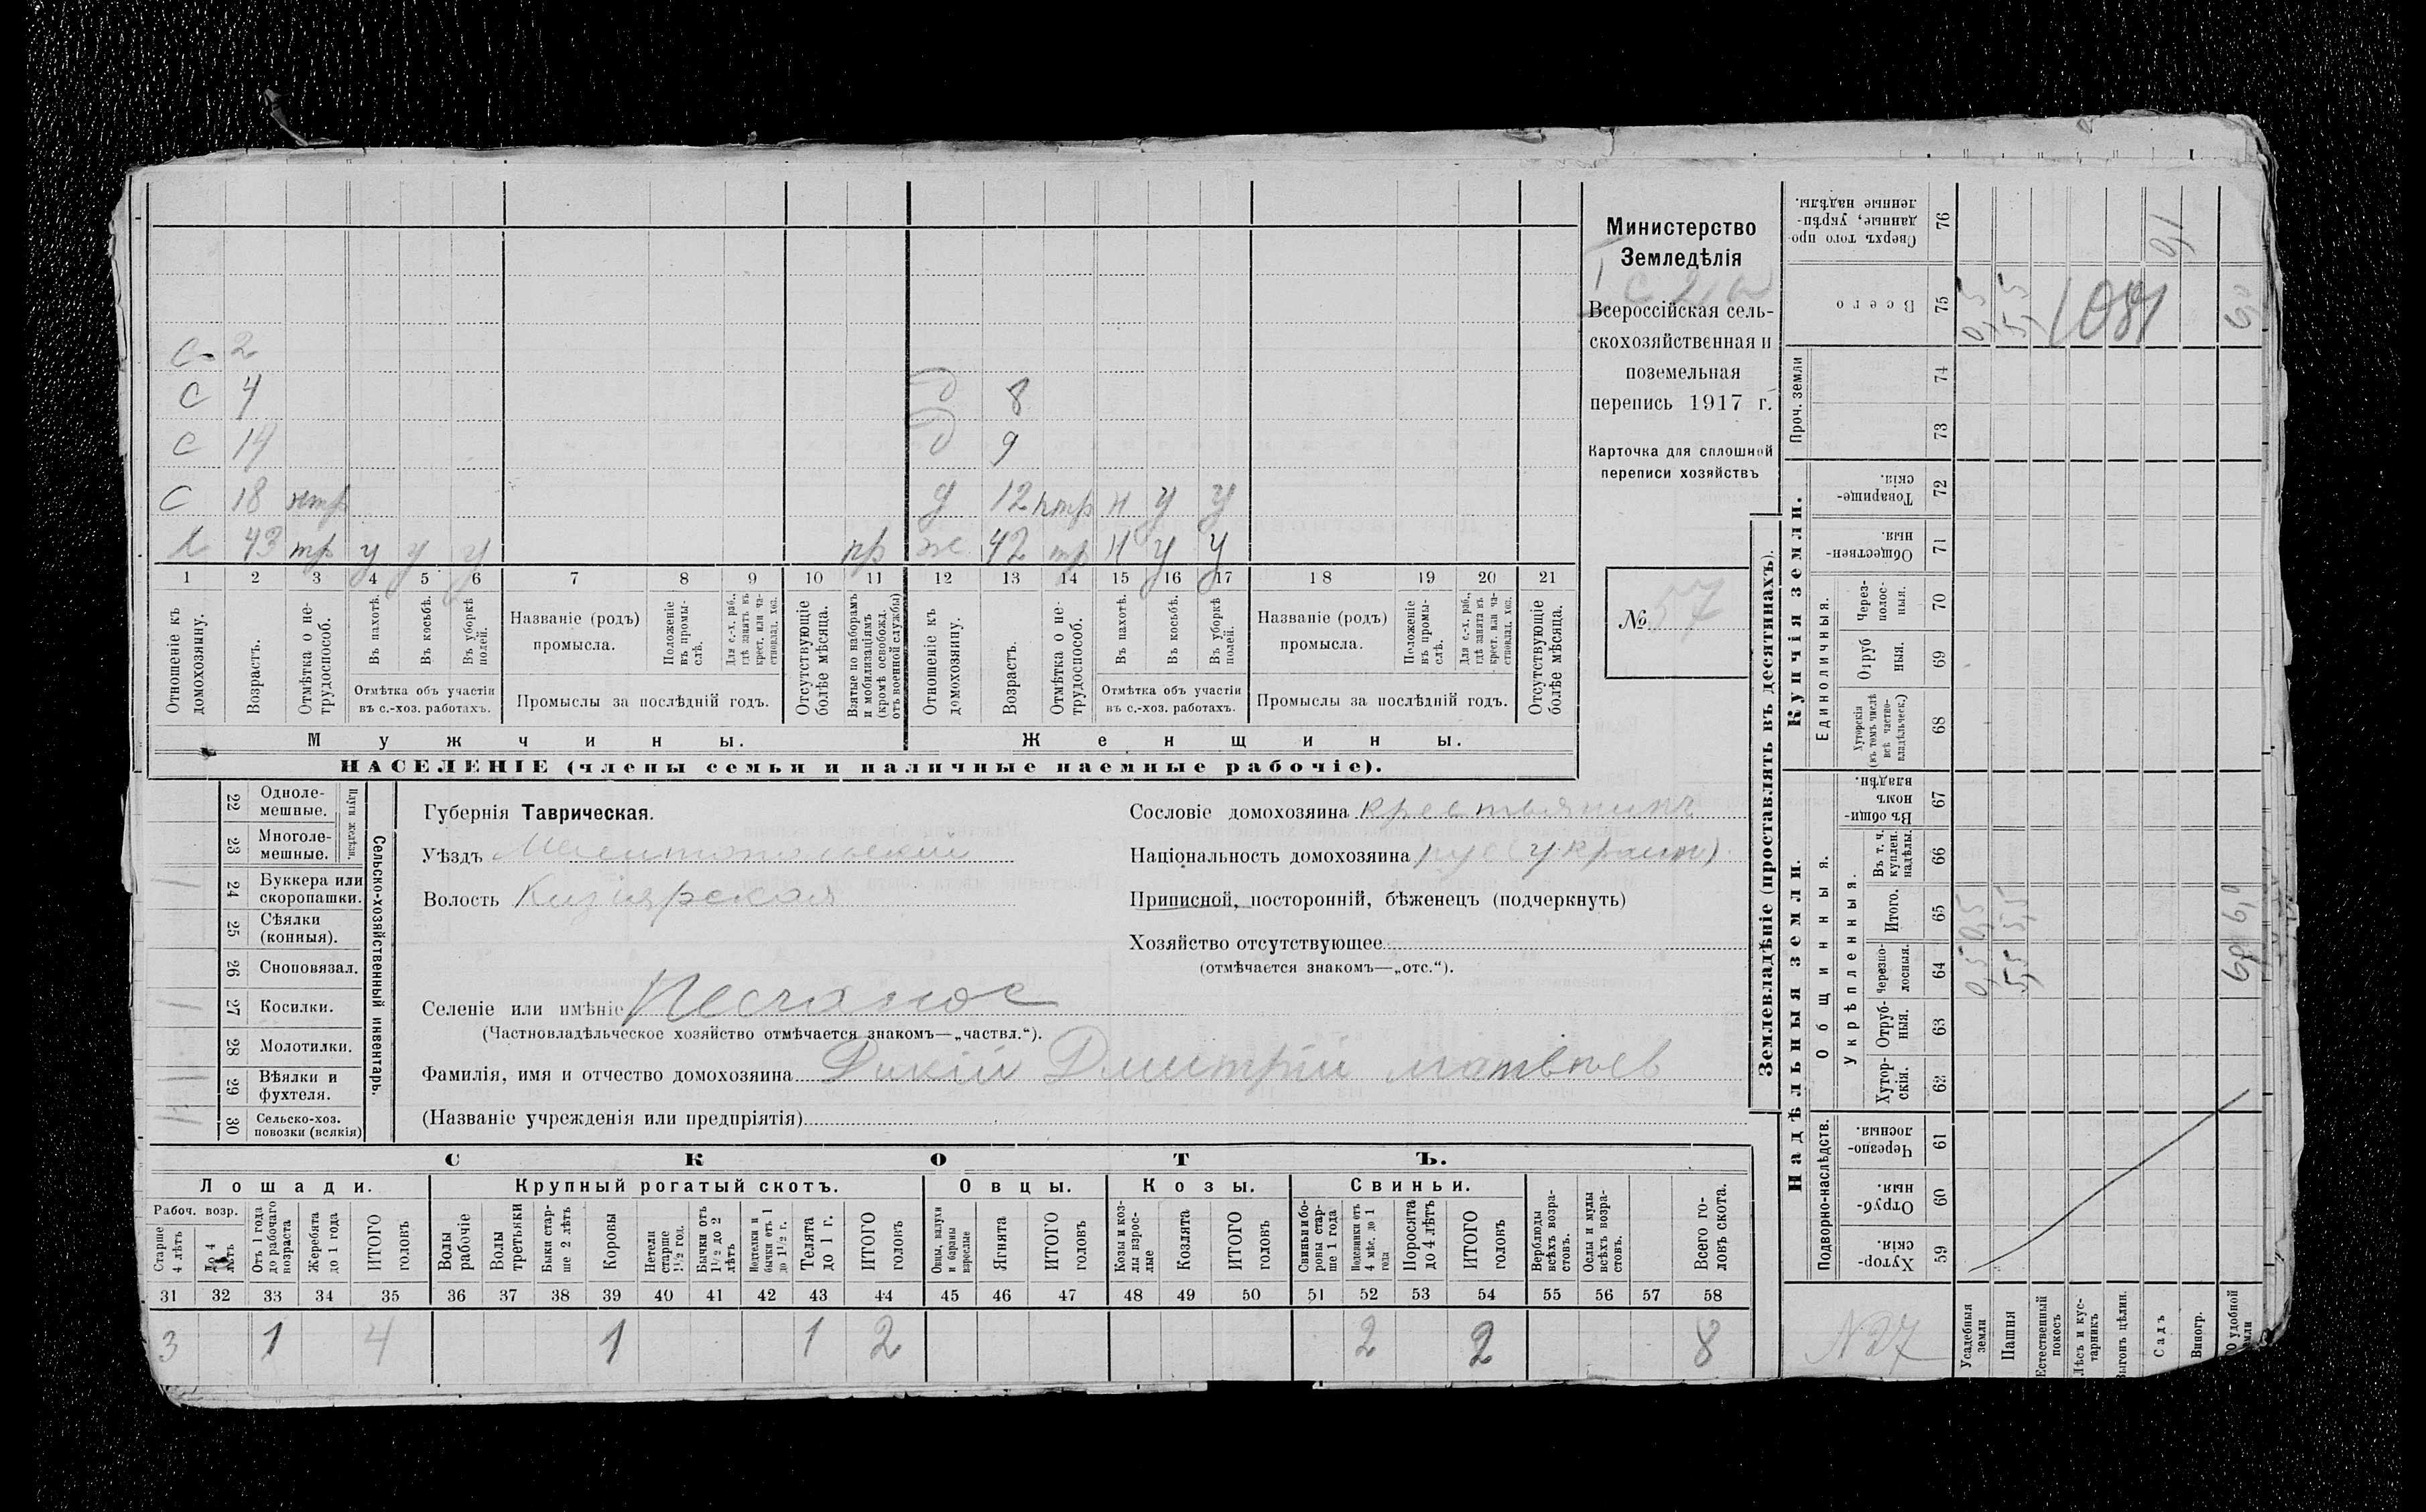 Министерство
Земледѣлія
Всероссійская сель-
скохозяйственная и
поземельная
перепись 1917 г.
Карточка для сплошной
переписи хозяйствъ
№ 57
с 2
с 4 д 8
с 14 д 9
с 18 нтр д 12 нтр н у у
43 тр у у у пр ж 42 тр н у у
1 2 3 4 5 6 7 8 9 10 11 12 13 14 15 16 17 18 19 20 21
Отношеніе къ домохозяину.
Возрастъ.
Отмѣтка о не-трудоспособ.
Въ пахотѣ.
Въ косьбѣ.
Въ уборкѣ полей.
Отмѣтка объ участіи
въ с.-хоз. работахъ.
Названіе (родъ)
промысла.
Положеніе въ промы-слѣ.
Для с.-х. раб., гдѣ занятъ въ крест. или ча-стновлад. хоз.
Промыслы за послѣдній годъ.
Отсутствующіе болѣе мѣсяца.
Взятые по наборамъ и мобилизаціямъ (кромѣ освобожд. отъ военной службы)
Отношеніе къ домохозяину.
Возрастъ.
Отмѣтка о не-трудоспособ.
Въ пахотѣ.
Въ косьбѣ.
Въ уборкѣ полей.
Отмѣтка объ участіи
въ с.-хоз. работахъ.
Названіе (родъ)
промысла.
Положеніе въ промы-слѣ.
Для с.-х. раб., гдѣ занята въ крест. или ча-стновлад. хоз.
Промыслы за послѣдній годъ.
Отсутствующіе болѣе мѣсяца.
Мужчины. Женщины.
НАСЕЛЕНІЕ (члены семьи и наличные наемные рабочіе).
22 Одноле-мешные.
23 Многоле-мешные.
Плуги желѣзн.
24 Буккера или скоропашки.
25 Сѣялки (конныя).
26 Сноповязал.
27 Косилки.
28 Молотилки.
29 Вѣялки и фухтеля.
30 Сельско-хоз. повозки (всякія)
Сельско-хозяйственный инвентарь.
Губернія Таврическая.
Уѣздъ Мелитопольскій
Волость Кизіярская
Селеніе или имѣніе Песчаное
(Частновладѣльческое хозяйство отмѣчается знакомъ—„частвл.“).
Фамилія, имя и отчество домохозяина Дикій Дмитрій Матвѣев
(Названіе учрежденія или предпріятія)
Сословіе домохозяина крестьянинъ
Національность домохозяина рус (украин)
Приписной, посторонній, бѣженецъ (подчеркнуть)
Хозяйство отсутствующее
(отмѣчается знакомъ—„отс.“).
СКОТЪ.
Лошади. Крупный рогатый скотъ. Овцы. Козы. Свиньи.
Рабоч. возр.
Старше 4 лѣтъ
До 4 лѣтъ
Отъ 1 года до рабочаго возраста
Жеребята до 1 года
ИТОГО головъ
Волы рабочіе
Волы третьяки
Быки стар-ше 2 лѣтъ
Коровы
Нетели старше 1½ год.
Бычки отъ 1½ до 2 лѣтъ
Подтелки и бычки отъ 1 до 1½ г.
Телята до 1 г.
ИТОГО головъ
Овцы, валухи и бараны взрослые
Ягнята
ИТОГО головъ
Козы и коз-лы взрос-лые
Козлята
ИТОГО головъ
Свиньи и бо-ровы стар-ше 1 года
Подсвинки отъ 4 мѣс. до 1 года
Поросята до 4 лѣтъ
ИТОГО головъ
Верблюды всѣхъ возра-стовъ.
Ослы и мулы всѣхъ возра-стовъ.
Всего го-ловъ скота.
31 32 33 34 35 36 37 38 39 40 41 42 43 44 45 46 47 48 49 50 51 52 53 54 55 56 57 58
3 1 4 1 1 2 2 2 8
Землевладѣніе (проставлять въ десятинахъ).
Надѣльныя земли. Купчія земли.
Подворно-наслѣдств.
Общинныя.
Укрѣпленныя.
Единоличныя.
Проч. земли
Хутор-скія. 59
Отруб-ныя. 60
Черезпо-лосныя. 61
Хутор-скія. 62
Отруб-ныя. 63
Черезпо-лосныя. 64
Итого. 65
Въ т. ч. куплен. надѣлы. 66
Въ общи-номъ владѣн. 67
Хуторскія (въ томъ числѣ всѣ частно-владѣльческ.) 68
Отруб ныя. 69
Через-полос-ныя. 70
Обществен-ныя. 71
Товарище-скія. 72
73
74
Всего 75
Сверхъ того про-данные, укрѣп-ленные надѣлы. 76
№ 37
Усадебныя земли 0,5 0,5 0,5
Пашня 5,5 5,5 5,5
Естественный покосъ
Лѣсъ и кус-тарникъ
Выгонъ цѣлин.
Садъ
Виногр.
удобной земли 6,0 6,0 6,0
1081